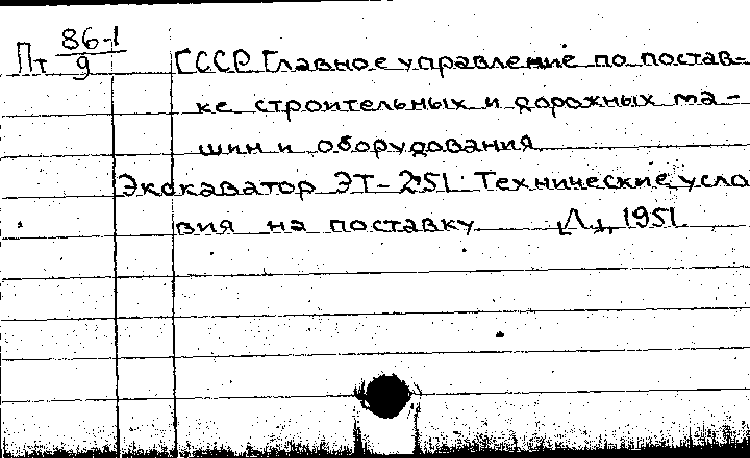 Пт 86-1/9 СССР. Главное управление по постав-
ке строительных и дорожных ма-
шин и оборудования
Экскаватор ЭТ-251. Технические усло
вия на поставку. [Л.], 1951.